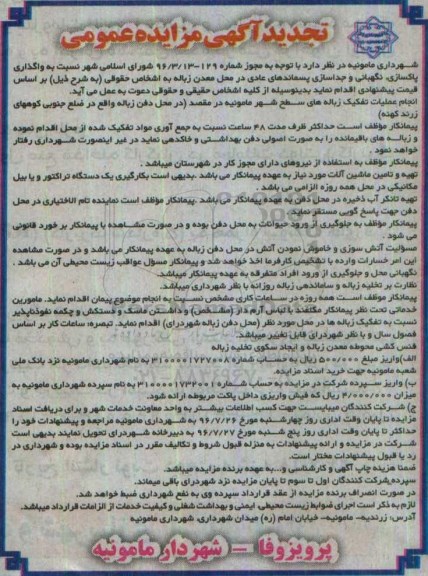 تجدید آگهی مزایده عمومی
شهرداری مامونیه در نظر دارد با توجه به مجوز شماره ۱۲۹-۹۶/۳/۱۳ شورای اسلامی شهر نسبت به واگذاری
پاکسازی، نگهبانی و جداسازی پسماندهای عادی در محل معدن زباله به اشخاص حقوقی (به شرح ذیل) بر اساس
قیمت پیشنهادی اقدام نماید بدینوسیله از کلیه اشخاص حقیقی و حقوقی دعوت به عمل می آید.
انجام عملیات تفکیک زباله های سطح شهر مامونیه در مقصد (در محل دفن زباله واقع در ضلع جنوبی کوههای
زرند کهنه)
پیمانکار موظف است حداکثر ظرف مدت ۴۸ ساعت نسبت به جمع آوری مواد تفکیک شده از محل اقدام نموده
و زباله های باقیمانده را به صورت اصولی دفن بهداشتی و خاکدهی نماید در غیر اینصورت شهرداری رفتار
خواهد نمود .
پیمانکار موظف به استفاده از نیروهای دارای مجوز کار در شهرستان میباشد .
تهیه و تامین ماشین آلات مورد نیاز به عهده پیمانکار می باشد .بدیهی است بکارگیری یک دستگاه تراکتور و یا بیل
مکانیکی در محل همه روزه الزامی می باشد .
تهیه تانکر آب ذخیره در محل دفن به عهده پیمانکار می باشد .پیمانکار موظف است نماینده تام الاختیاری در محل
دفن جهت پاسخ گویی مستقر نماید .
پیمانکار موظف به جلوگیری از ورود حیوانات به محل دفن بوده و در صورت مشاهده با پیمانکار بر خورد قانونی
می شود .
مسئولیت آتش سوزی و خاموش نمودن آتش در محل دفن زباله به عهده پیمانکار می باشد و در صورت مشاهده
این امر خسارات وارده با تشخیص کارفرما اخذ خواهد شد و پیمانکار مسؤل عواقب زیست محیطی آن می باشد .
نگهبانی محل و جلوگیری از ورود افراد متفرقه به عهده پیمانکار میباشد.
نظارت بر تخلیه زباله و ساماندهی زباله روزانه با نظر شهرداری میباشد.
پیمانکار موظف است همه روزه در ساعات کاری مشخص نسبت به انجام موضوع پیمان اقدام نماید. مامورین
خدماتی تحت نظر پیمانکار مکلفند با لباس آرم دار (مشخص) و داشتن ماسک و دستکش و چکمه نفوذناپذیر
نسبت به تفکیک زباله ها در محل مورد نظر (محل دفن زباله شهرداری) اقدام نماید. تبصره: ساعات کار بر اساس
فصول سال و با نظر شهرداری قابل تغییر میباشد.
فنس کشی محوطه معدن زباله و ایجاد سکوی تخلیه زباله
الف)واریز مبلغ ۵۰۰/۰۰۰ ریال به حساب شماره ۳۱۰۰۰۰۱۷۲۷۰۰۸ به نام شهرداری مامونیه نزد بانک ملی
شعبه مامونیه جهت خرید اسناد مزایده.
ب) واریز سپرده شرکت در مزایده به حساب شماره ۳۱۰۰۰۰۱۷۳۲۰۰۱ به نام سپرده شهرداری مامونیه به
میزان ۴/۰۰۰/۰۰۰ ریال که فیش واریزی داخل پاکت مربوطه ارائه شود.
ج) شرکت کنندگان میبایست جهت کسب اطلاعات بیشتر به واحد معاونت خدمات شهر و برای دریافت اسناد
مزایده تا پایان وقت اداری روز چهارشنبه مورخ ۹۶/۷/۲۶ به شهرداری مامونیه مراجعه و پیشنهادات خود را
حداکثر تا پایان وقت اداری روز پنج شنبه مورخ ۹۶/۷/۲۷ به دبیرخانه شهرداری تحویل نمایند بدیهی است
شرکت در مزایده و ارائه پیشنهادات به منزله قبول شروط و تکالیف مقرر در اسناد مزایده بوده و شهرداری در
رد یا قبول پیشنهادات مختار است.
ضمنا هزینه چاپ آگهی و کارشناسی و...به عهده برنده مزایده میباشد.
سپرده شرکت کنندگان اول تا سوم تا پایان مزایده نزد شهرداری باقی میماند.
در صورت انصراف برنده مزایده از عقد قرارداد سپرده وی به نفع شهرداری ضبط خواهد شد.
لازم به ذکر است اجرای ضوابط زیست محیطی، ایمنی و بهداشت شغلی و کیفیت خدمات از الزامات قرارداد میباشد.
آدرس: زرندیه- مامونیه- خیابان امام (ره) میدان شهرداری، شهرداری مامونیه
پرویز وفا - شهردار مامونیه